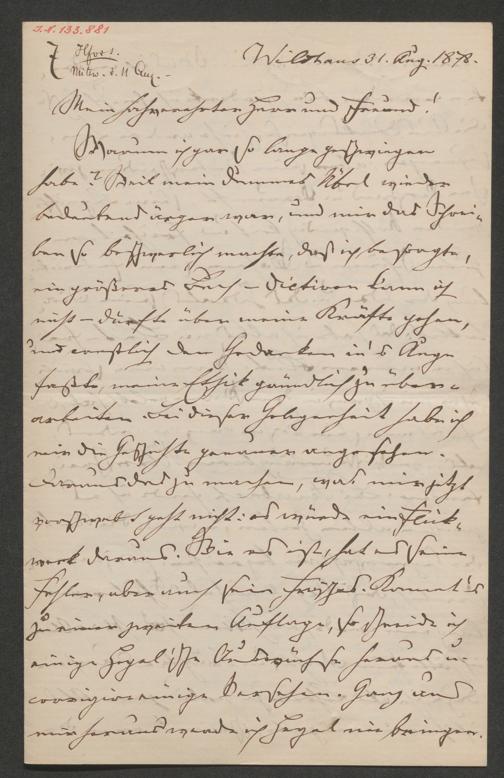 I.N. 133.881
Wildhaus 31. Aug. 1878.
Mein hochverehrter Herr und Freund!
Warum ich gar so lange geschwiegen
habe? Weil mein dummes Übel wieder
bedeutend ärger war, und mir das Schrei-
ben so beschwerlich machte, daß ich besorgte,
ein größeres Buch – diktiren kann ich
nicht – dürfte über meine Kräfte gehen,
und ernstlich den Gedanken in's Auge
faßte, meine Ethik gründlich zu über-
arbeiten. Bei dieser Gelegenheit habe ich
mir die Geschichte genauer angesehen.
Daraus das zu machen, was mir jetzt
vorschwebt, geht nicht: es würde ein Flick-
werk daraus. Wie es ist, hat es seine
Fehler, aber auch sein Frisches. Kommt's
zu einer zweiten Auflage, so schneide ich
einige Hegel'sche Auswüchse heraus u.
corrigire einige Versehen. Ganz aus
mir heraus werde ich Hegel nie bringen.